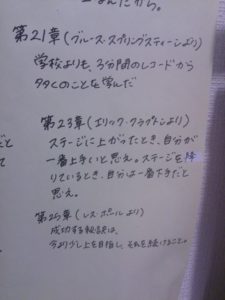 なんだから。
第21章(ブルース・スプリングスティーンより)
学校よりも、3分間のレコードから
多くのことを学んだ
第23章(エリック・クラプトンより)
ステージに上がったとき、自分が
一番上手いと思え。ステージを降
りているとき、自分は一番下手だと
思え。
第25章(レス・ポールより)
成功する秘訣は、
今より少し上を目指し、それを続けること。